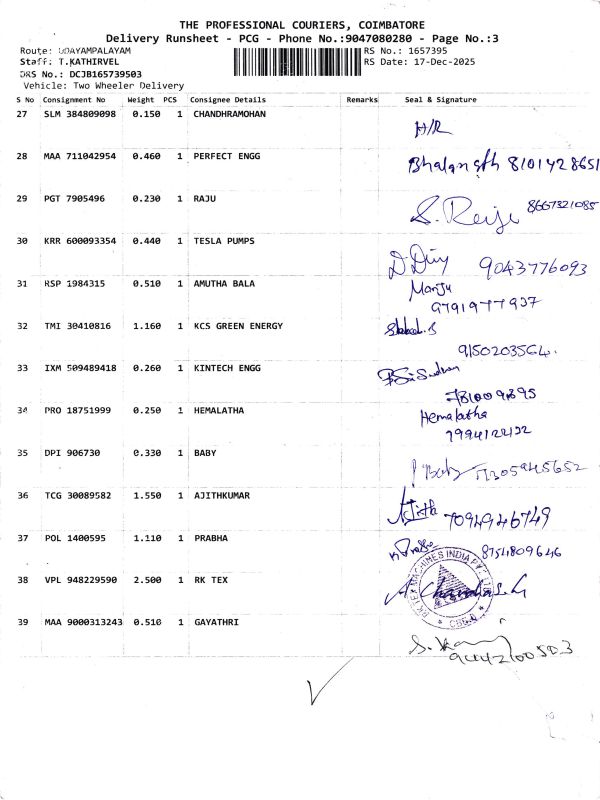 THE PROFESSIONAL COURIERS, COIMBATORE
Delivery Runsheet - PCG - Phone No.:9047080280 - Page No.:3
Route: UDAYAMPALAYAM RS No.: 1657395
Staff: T.KATHIRVEL RS Date: 17-Dec-2025
DRS No.: DCJB165739503
Vehicle: Two Wheeler Delivery
S No Consignment No Weight PCS Consignee Details Remarks Seal & Signature
27 SLM 384809098 0.150 1 CHANDHRAMOHAN
H/R
28 MAA 711042954 0.460 1 PERFECT ENGG
8101428651
29 PGT 7905496 0.230 1 RAJU
8667321085
30 KRR 600093354 0.440 1 TESLA PUMPS
9043776093
31 RSP 1984315 0.510 1 AMUTHA BALA
Manju
9791977937
32 TMI 30410816 1.160 1 KCS GREEN ENERGY
9150203564.
33 IXM 509489418 0.260 1 KINTECH ENGG
34 PRO 18751999 0.250 1 HEMALATHA
Hemalatha
35 DPI 906730 0.330 1 BABY
Baby
36 TCG 30089582 1.550 1 AJITHKUMAR
Ajith 7094946749
37 POL 1400595 1.110 1 PRABHA
8754809646
38 VPL 948229590 2.500 1 RK TEX
RK TEX MACHINES INDIA PVT LTD
39 MAA 9000313243 0.510 1 GAYATHRI